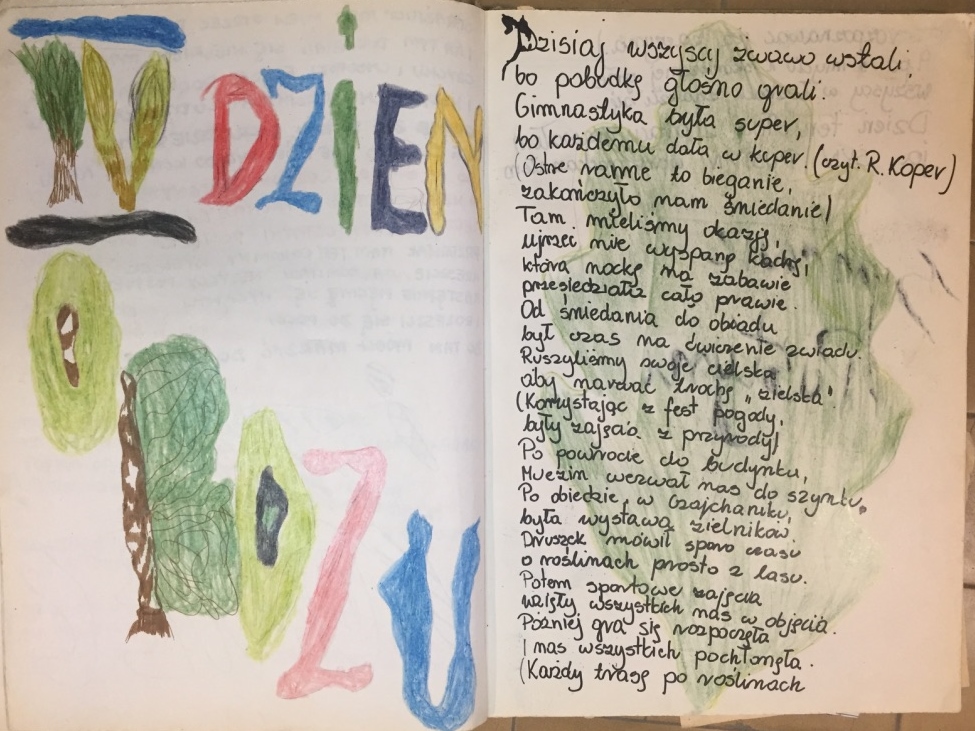 IV DZIEŃ
OBOZU
Dzisiaj wszyscy żwawo wstali,
bo pobudkę głośno grali.
Gimnastyka była super,
bo każdemu dała w kuper. (czyt. R. Koper)
(Ostre ranne to bieganie,
zakończyło nam śniadanie)
Tam mieliśmy okazję,
ujrzeć nie wyspaną Kachę,
która nockę na zabawie
przesiedziała całą prawie.
Od śniadania do obiadu
był czas na ćwiczenie zwiadu.
Ruszyliśmy swoje cielska
aby narwać trochę "zielska".
(Korzystając z fest pogody,
były zajęcia z przyrody)
Po powrocie do budynku,
Muezin wezwał nas do szynku.
Po obiedzie, w Czajchaniku,
była wystawa zielników.
Druszek mówił sporo czasu
o roślinach prosto z lasu.
Potem sportowe zajęcia
wzięły wszystkich nas w objęcia.
Później gra się rozpoczęła
I nas wszystkich pochłonęła.
(Każdy trasę po roślinach